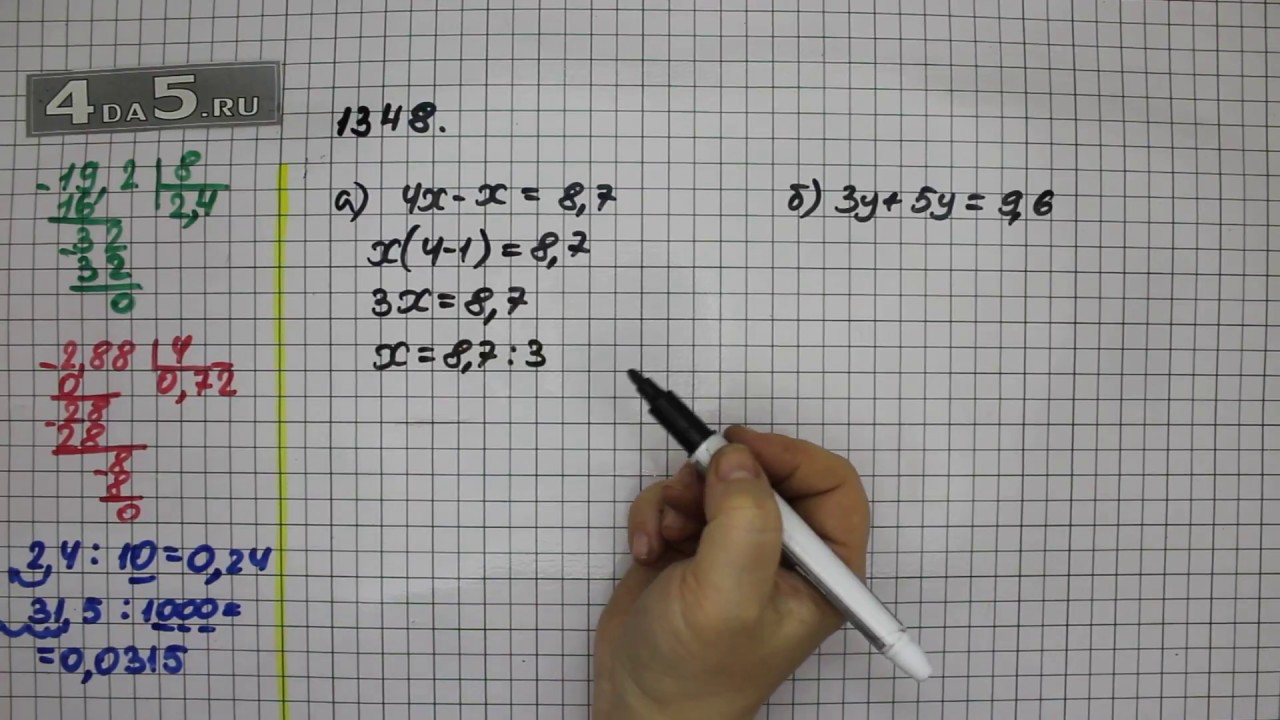 4DA5.RU
19,2 | 8
16 2,4
32
32
0
2,88 | 4
0 0,72
28
28
8
8
0
2,4 : 10 = 0,24
31,5 : 1000 =
= 0,0315
1348.
а) 4x - x = 8,7
x(4-1) = 8,7
3x = 8,7
x = 8,7 : 3
б) 3y + 5y = 9,6